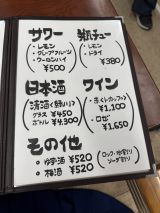 サワー
・レモン
・グレープフルーツ
・ウーロンハイ
¥500
瓶チュー
・レモン
・ドライ
¥380
日本酒
グラス ¥450
ボトル ¥4,300
ワイン
¥1,100
・ロゼ
¥1,650
その他
・梅酒 ¥520
¥520
ロック・水割り
ソーダ割り